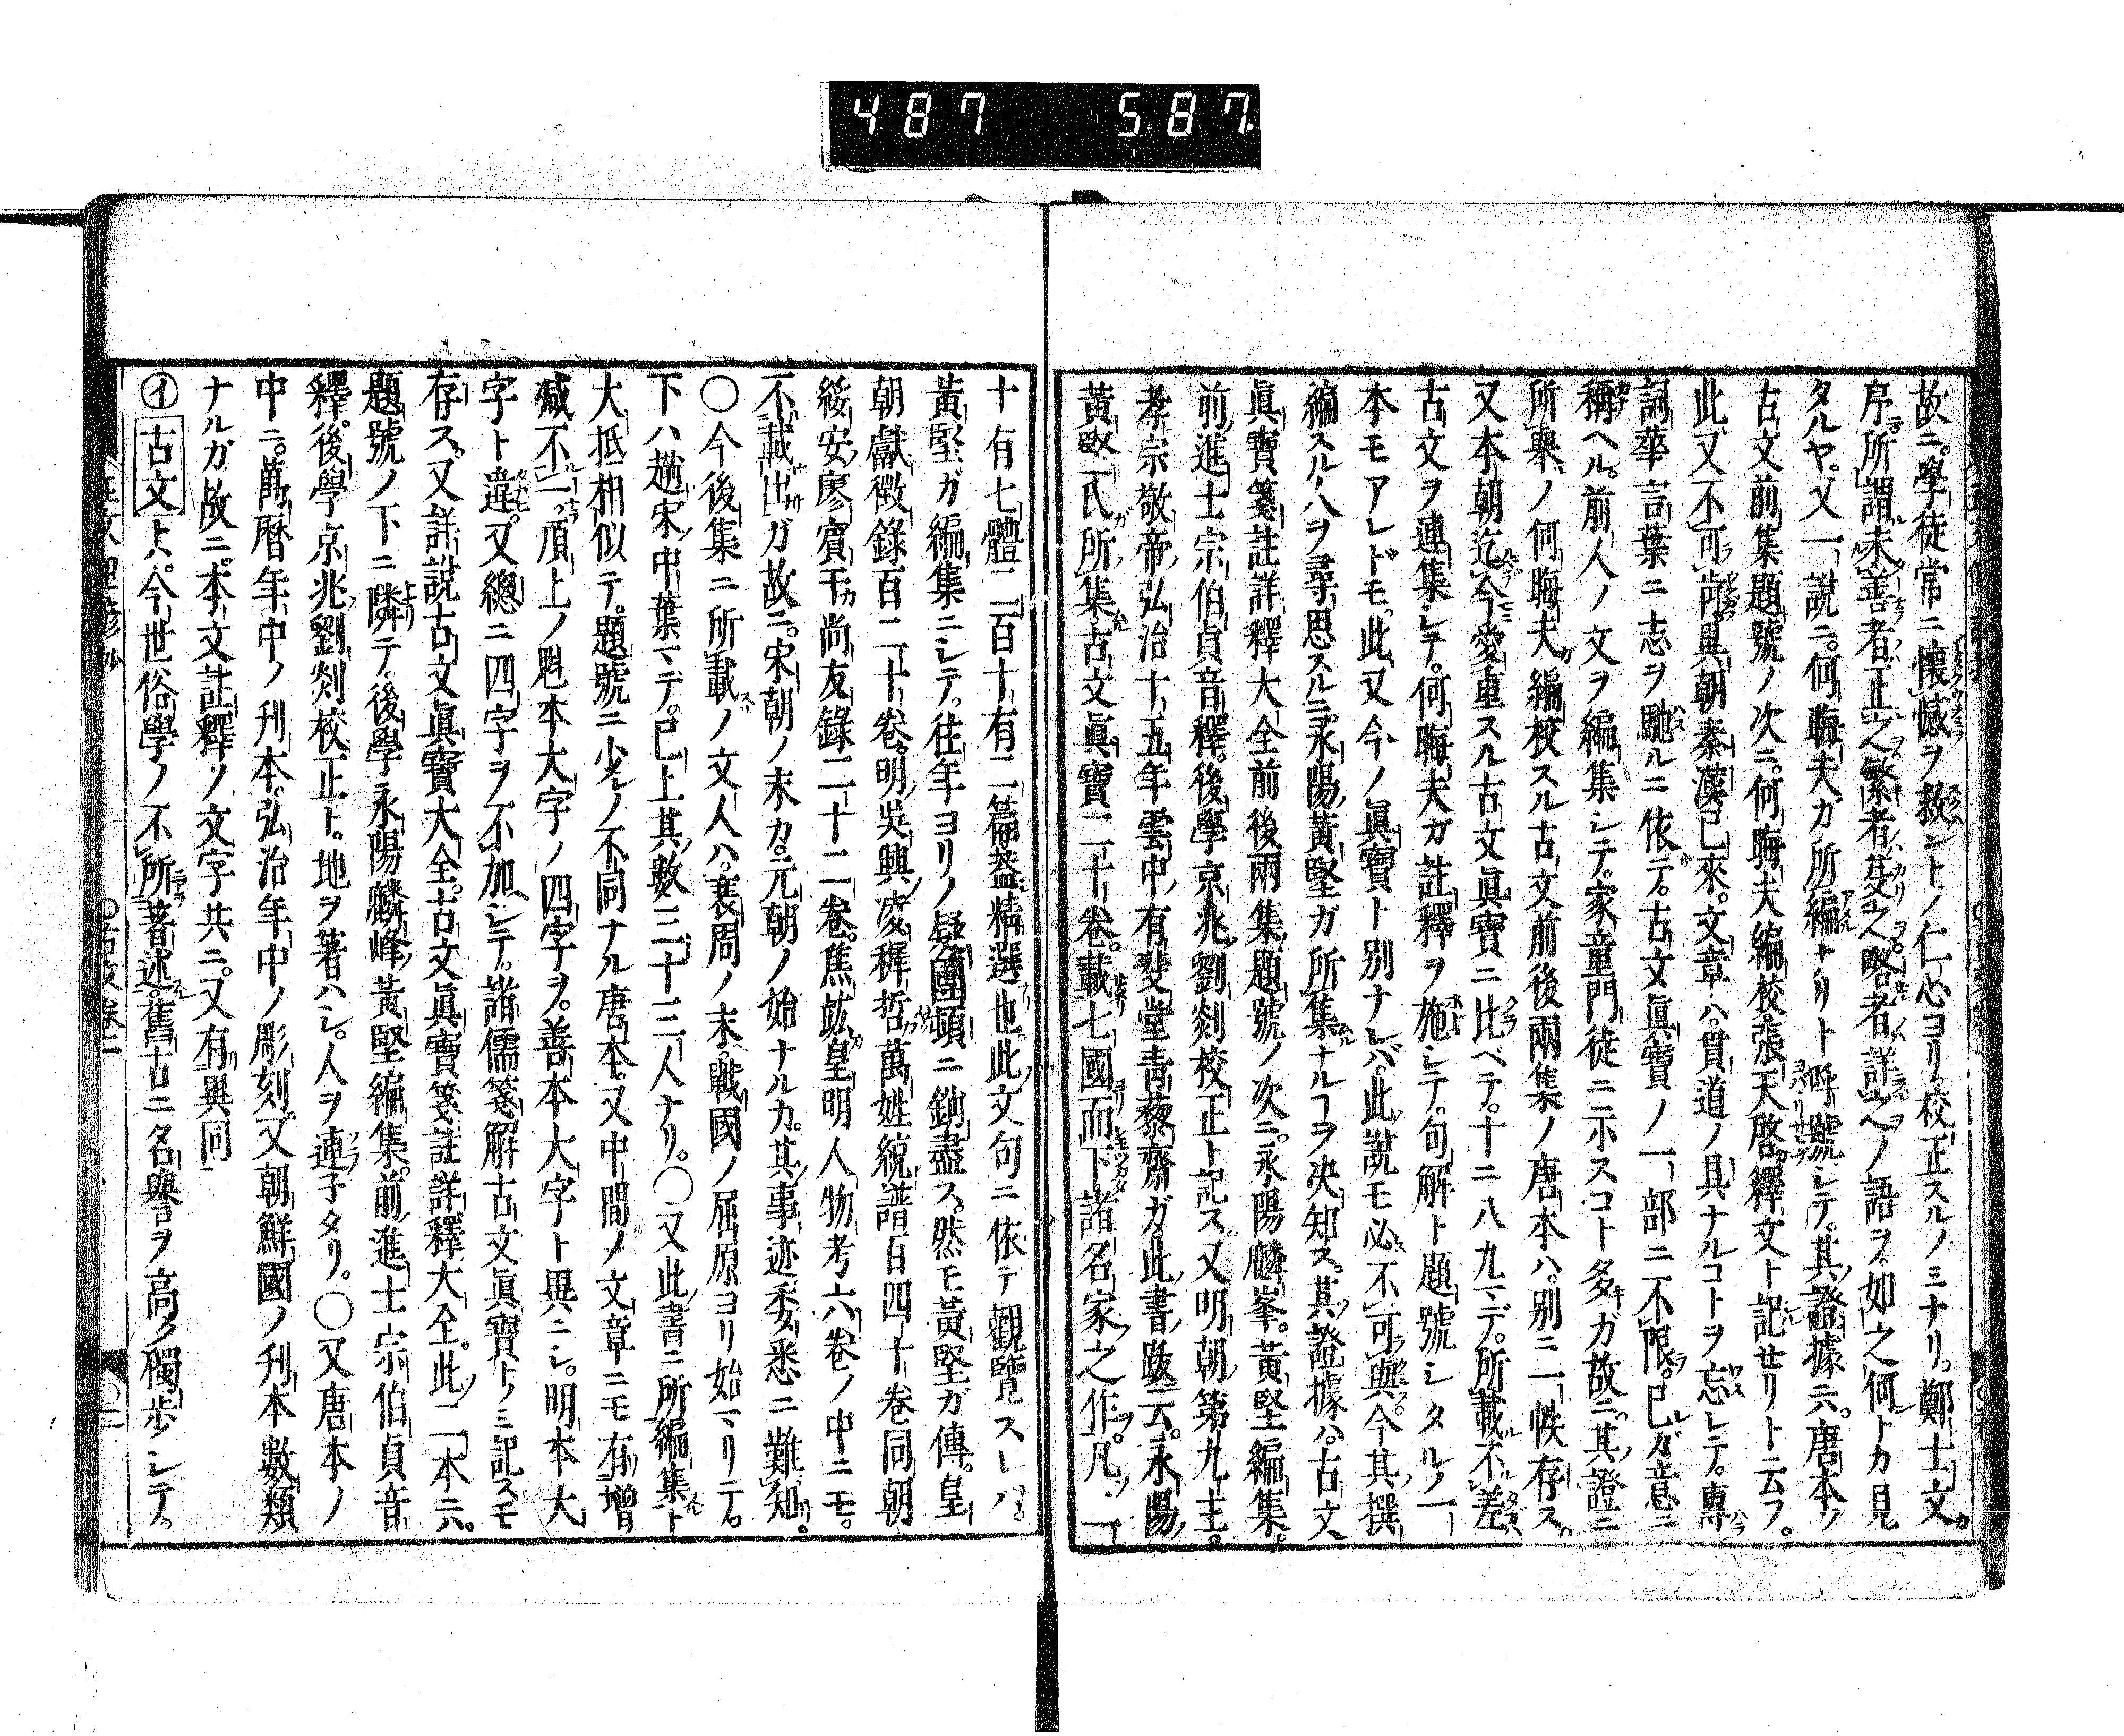 487 587.
故ニ。學徒常ニ懷憾ヲ救ントノ仁心ヨリ。校正スルノミナリ。鄭士文
序所謂未善者正之。繁者芟之。略者詳之ヘノ語ヲ。如之何トカ見
タルヤ。又一説ニ。何晦夫ガ所編ナリト呼號シテ。其證據ニ。唐本ノ
古文前集題號ノ次ニ。何晦夫編校。張天啓釋文ト記セリト云フ。
此又不可肯。異朝秦漢已來。文章ハ貫道ノ具ナルコトヲ忘レテ。專
詞華言葉ニ志ヲ馳ルニ依テ。古文眞寶ノ一部ニ不限。已ガ意ニ
稱ヘル。前人ノ文ヲ編集シテ。家童門徒ニ示スコト多ガ故ニ。其證ニ
所擧ノ何晦夫編校スル古文前後兩集ノ唐本ハ。別ニ一帙存ス。
又本朝迄今愛重スル古文眞寶ニ比ベテ。十ニ八九マデ。所載不差
古文ヲ連集シテ。何晦夫ガ註釋ヲ施シテ。句解ト題號シタルノ一
本モアレドモ。此又今ノ眞寶ト別ナレバ。此説モ必不可與。今其撰
編スル人ヲ尋思スルニ。永陽黃堅ガ所集ナルヿヲ決知ス。其證據ハ。古文
眞寶箋註詳釋大全前後兩集題號ノ次ニ。永陽麟峯。黃堅編集。
前進士宗伯貞音釋。後學京兆劉剡校正ト記ス。又明朝第九主。
孝宗敬帝弘治十五年雲中有斐堂青藜齋ガ。此書跋云。永陽
黃堅氏所集古文眞寶二十卷。載七國而下諸名家之作。凡一
十有七體二百十有二篇蓋精選也。此文句ニ依テ觀覽スレバ。
黃堅ガ編集ニシテ。往年ヨリノ疑團頓ニ銷盡ス。然モ黃堅ガ傳。皇
朝獻徵錄百二十卷。明吳興凌稺哲萬姓統譜百四十卷同朝
綏安廖賓于尚友錄二十二卷。焦竑皇明人物考六卷ノ中ニモ。
不載出ガ故ニ。宋朝ノ末カ。元朝ノ始ナルカ。其事迹委悉ニ難知。
○今後集ニ所載ノ文人ハ。衰周ノ末。戰國ノ屈原ヨリ始マリテ。
下ハ趙宋中葉マデ。已上其數三十三人ナリ。○又此書ニ所編集ト
大抵相似テ。題號ニ少シノ不同ナル唐本。又中間ノ文章ニモ有增
減不一。頂上ノ魁本大字ノ四字ヲ。善本大字ト異ニシ。明本大
字ト違。又總ニ四字ヲ不加シテ。諸儒箋解古文眞寶トノミ記スモ
存ス。又詳説古文眞寶大全。古文眞寶箋註詳釋大全。此二本ニハ。
題號ノ下ニ隣テ。後學永陽麟峰黃堅編集。前進士宗伯貞音
釋。後學京兆劉剡校正ト。地ヲ著ハシ。人ヲ連子タリ。○又唐本ノ
中ニ。萬曆年中ノ刋本。弘治年中ノ彫刻。又朝鮮國ノ刋本數類
ナルガ故ニ。本文註釋ノ文字共ニ。又有異同
㋑古文ト。今世俗學ノ不所著述。舊古ニ名譽ヲ高ク獨歩シテ。